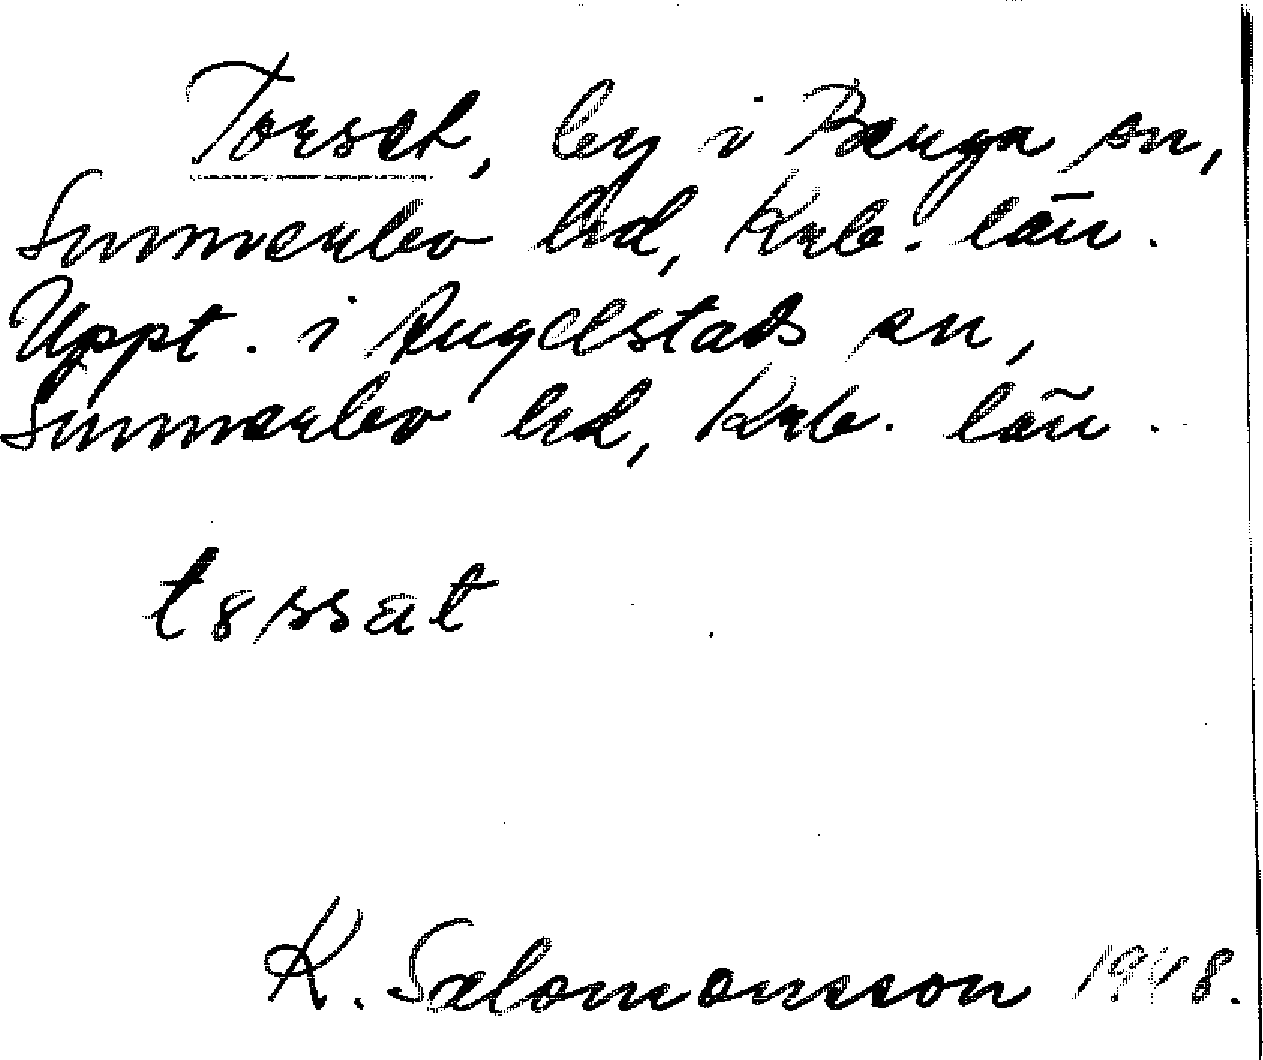 Torset, by i Berga sn,
Sunnerbo hd, Krb. län.
Uppt. i Angelstads sn,
Sunnerbo hd, Krb. län.
K. Salomonsson 1948.